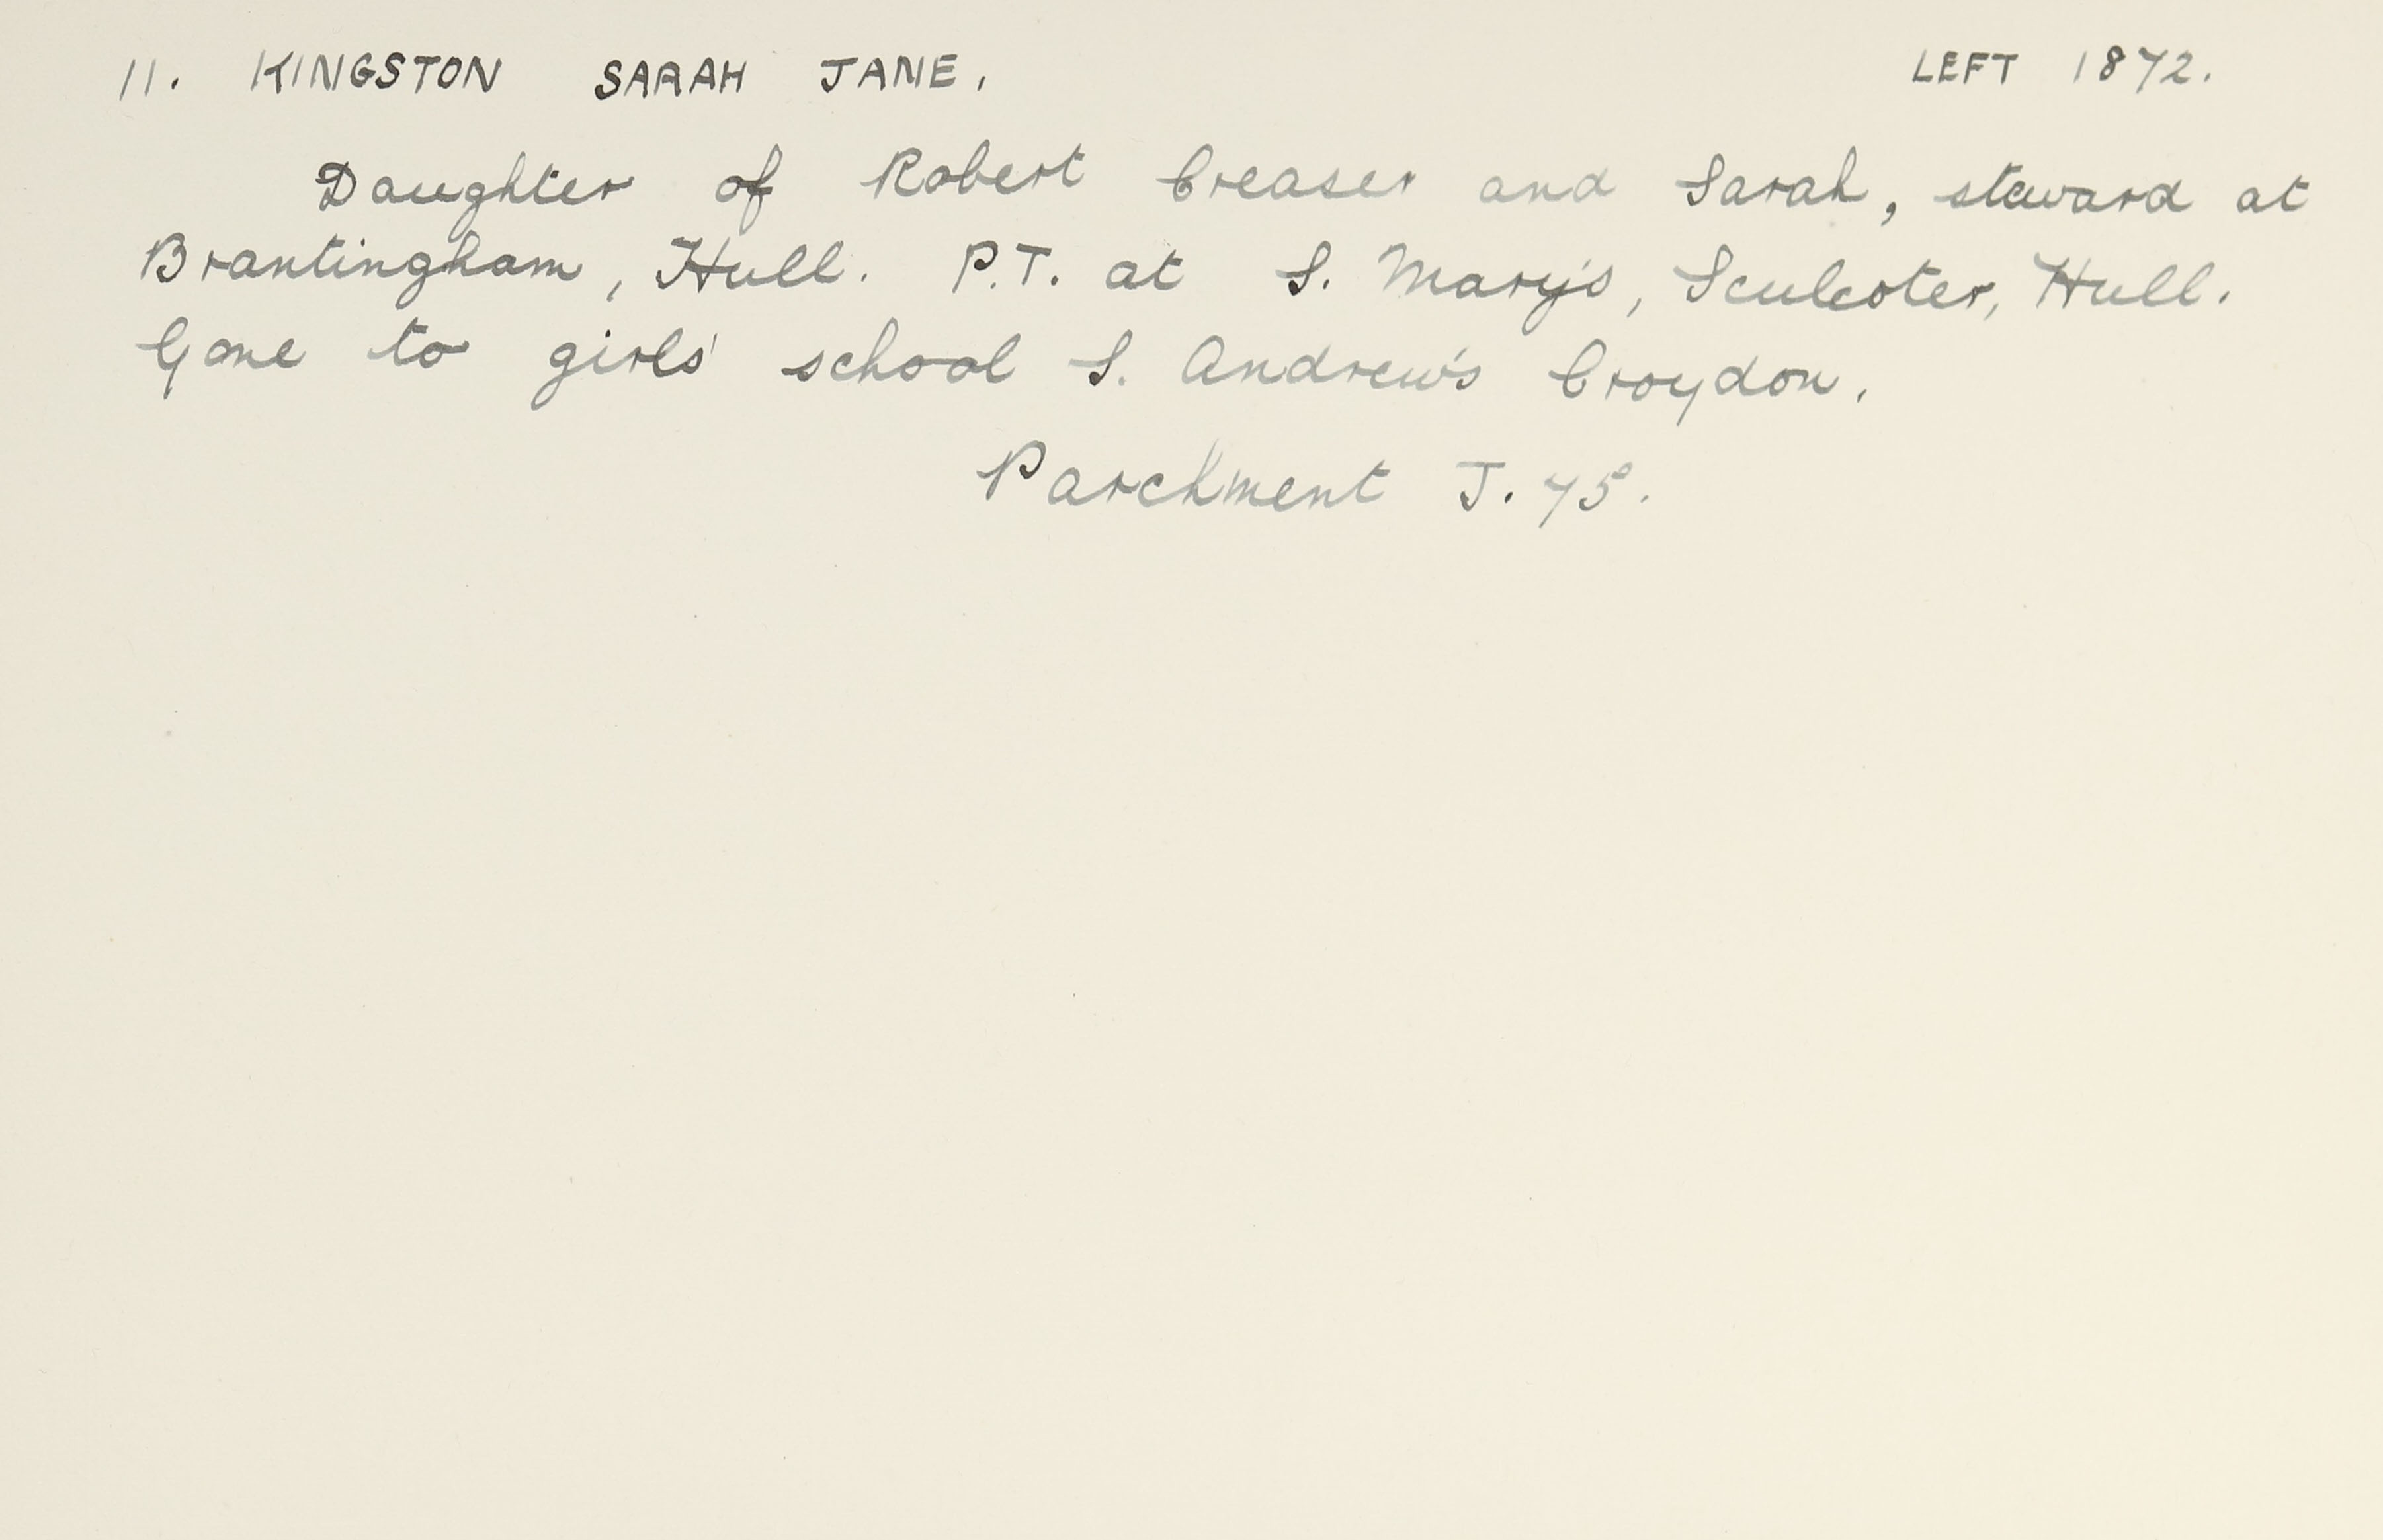 11. KINGSTON SARAH JANE. LEFT 1872.
Daughter of Robert Creaser and Sarah, steward at
Brantingham, Hull. P.T. at S. Mary's, Sculcoter, Hull.
Gone to girls' school S. Andrew's Croydon.
Parchment J. 75.